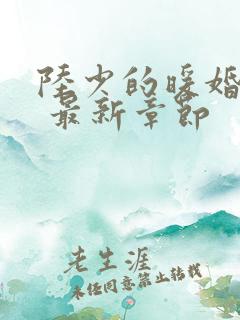 陆少的暖婚
最新章节
老生涯
未经同意禁止转载